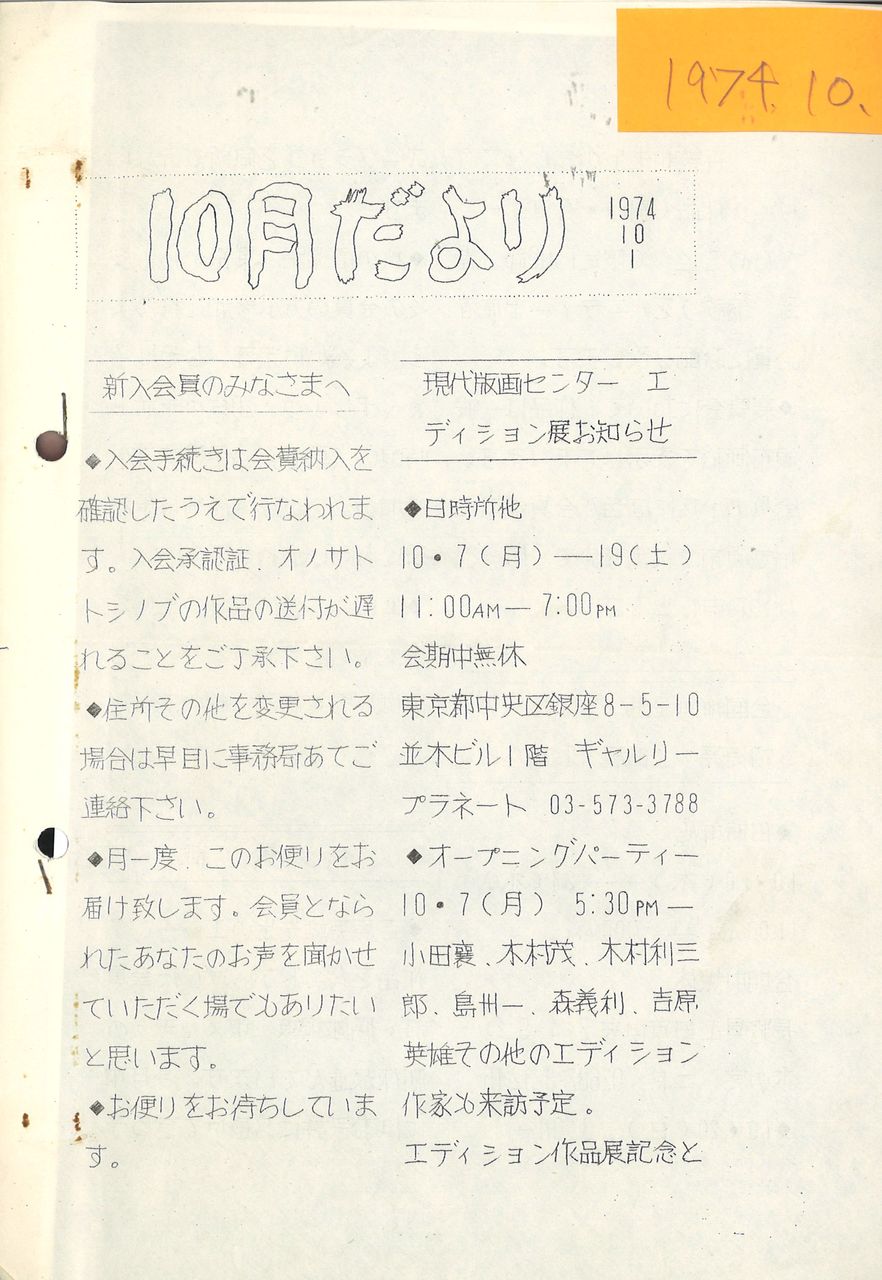 1974.10.
10月だより
1974
10
1
新入会員のみなさまへ
◆入会手続きは会費納入を
確認したうえで行なわれま
す。入会承認証、オノサト
トシノブの作品の送付が遅
れることをご了承下さい。
◆住所その他を変更される
場合は早目に事務局あてご
連絡下さい。
◆月一度、このお便りをお
届け致します。会員となら
れたあなたのお声を聞かせ
ていただく場でもありたい
と思います。
◆お便りをお待ちしていま
す。
現代版画センター エ
ディション展お知らせ
◆日時所他
10・7(月)—19(土)
11:00AM—7:00PM
会期中無休
東京都中央区銀座8-5-10
並木ビル1階 ギャルリー
プラネート 03-573-3788
◆オープニングパーティー
10・7(月) 5:30PM—
小田襄、木村茂、木村利三
郎、島州一、森義利、吉原
英雄その他のエディション
作家も来訪予定。
エディション作品展記念と